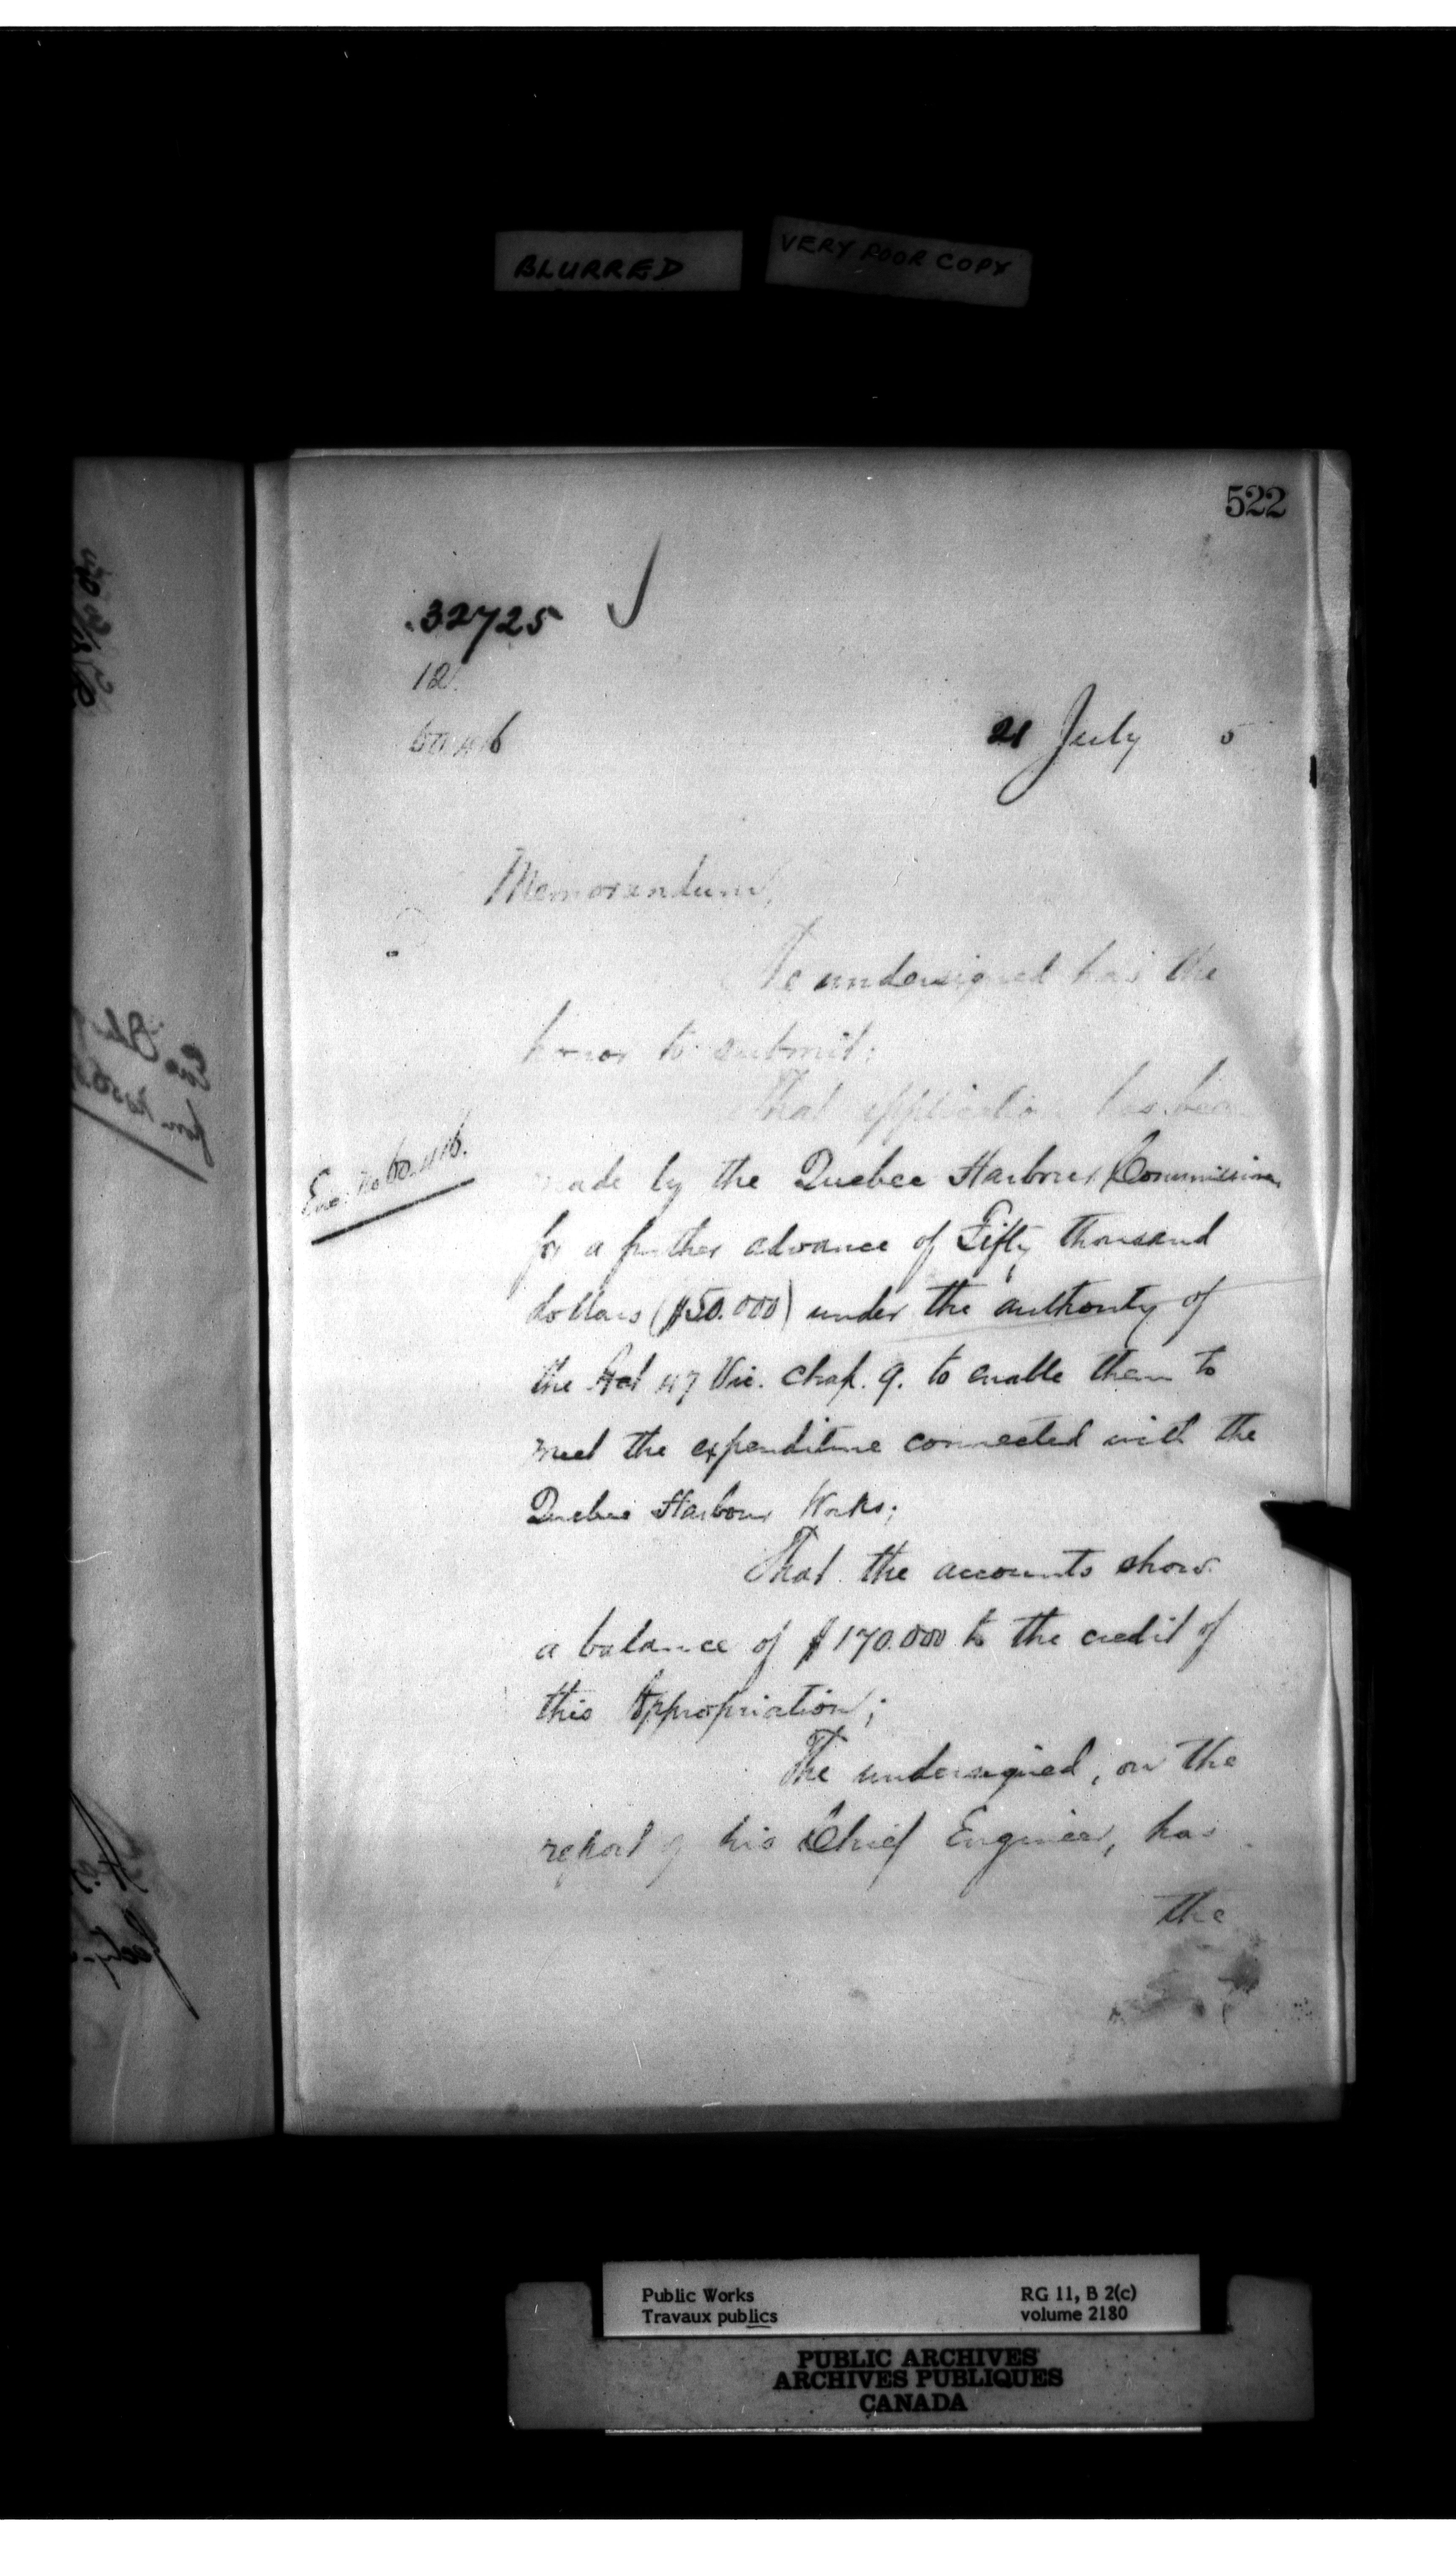 BLURRED
VERY POOR COPY
522
32725
12
60416
21 July 5
Memorandum,
The undersigned has the
honor to submit:
That application has been
Enc. No 60.416.
made by the Quebec Harbour Commission
for a further advance of Fifty thousand
dollars ($50.000) under the authority of
the Act 47 Vic. Chap. 9. to enable them to
meet the expenditure connected with the
Quebec Harbour Works;
That the accounts show
a balance of $170.000 to the credit of
this Appropriation;
The undersigned, on the
report of his Chief Engineer, has
the
Public Works
Travaux publics
RG 11, B 2(c)
volume 2180
PUBLIC ARCHIVES
ARCHIVES PUBLIQUES
CANADA